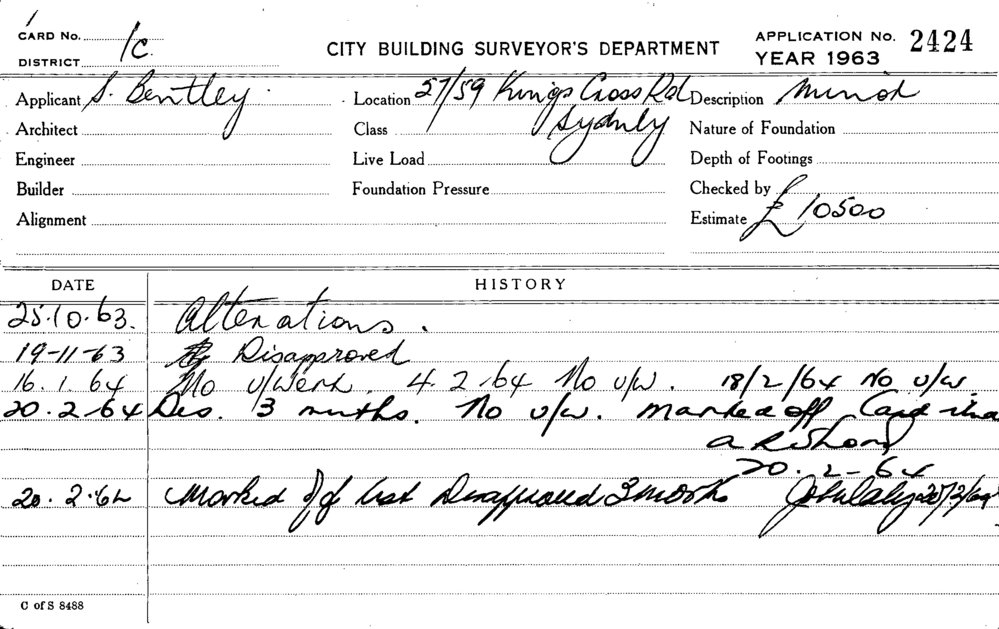 CARD No.
DISTRICT 1c
CITY BUILDING SURVEYOR'S DEPARTMENT
APPLICATION No. 2424
YEAR 1963
Applicant S. Bentley. Location 57/59 Kings Cross Rd Description Minor
Architect Class Sydney Nature of Foundation
Engineer Live Load Depth of Footings
Builder Foundation Pressure Checked by
Alignment Estimate £10500
DATE HISTORY
25.10.63. Alterations.
19-11-63 Disapproved
16.1.64 No u/work. 4.2.64 No u/w. 18/2/64 No u/w
20.2.64 Dis. 3 months. No u/w. marked off Card
20.2-64
20.2.64 Marked off list Disapproved 3 months 20/2/64
C of S 8488